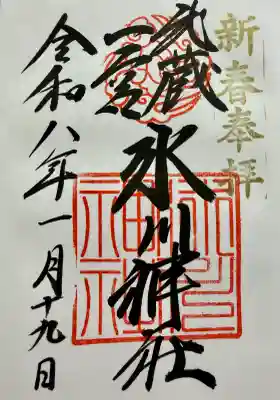 新春奉拝
武蔵
一宮
氷川神社
令和八年一月十九日